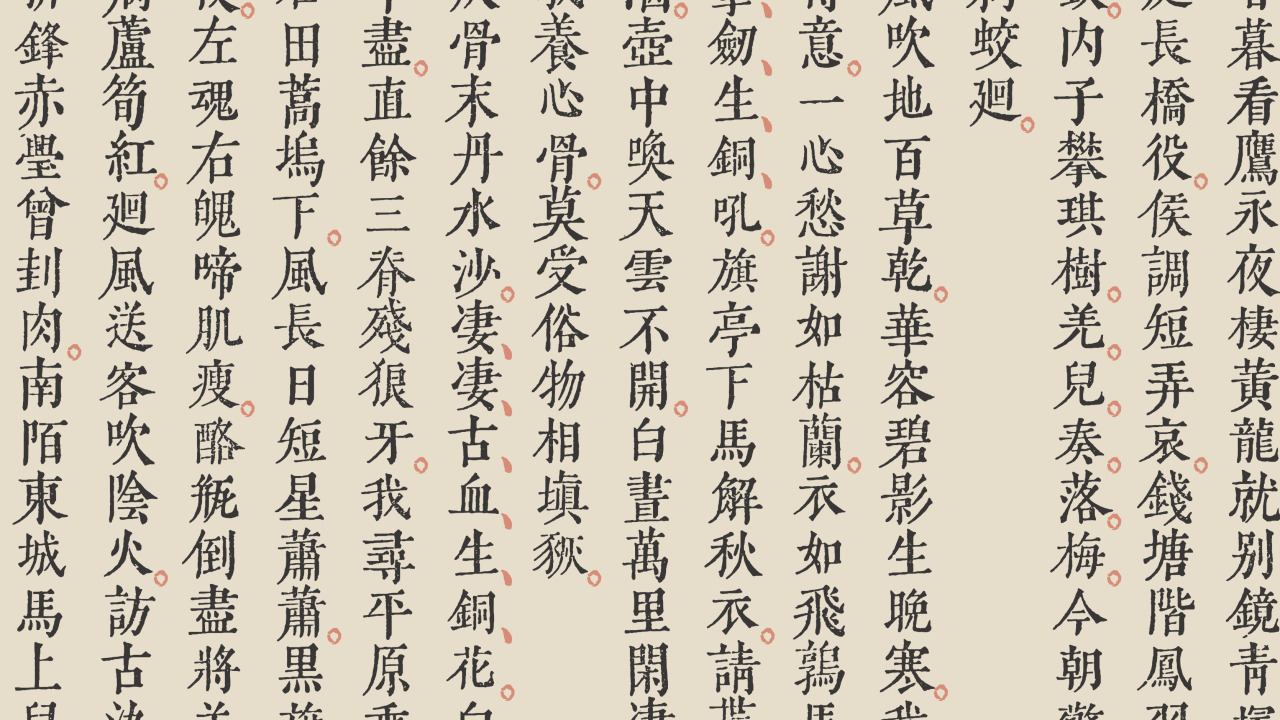 暮看鷹永夜棲黃龍就別鏡靑
長橋役。侯調短弄哀。錢塘階鳳
内子攀琪樹。羌兒。奏。落。梅。今朝
蛟廻。
風吹地百草乾。華容碧影生晚寒。我
意。一心愁謝如枯蘭。衣如飛鶉馬
劒、生、銅、吼。旗亭下馬解秋衣。請貰
壺中喚天雲不開。白晝萬里閑凄
養心骨。莫受俗物相塡豗。
骨末丹水沙。凄、凄、古、血、生、銅、花。白
盡。直餘三脊殘狼牙。我尋平原乘
田蒿塢下。風長日短星蕭蕭。黑旗
左魂右魄啼肌瘦。酪瓶倒盡將羊
蘆筍紅。廻風送客吹陰火。訪古
鋒赤璺曾刲肉。南陌東城馬上兒